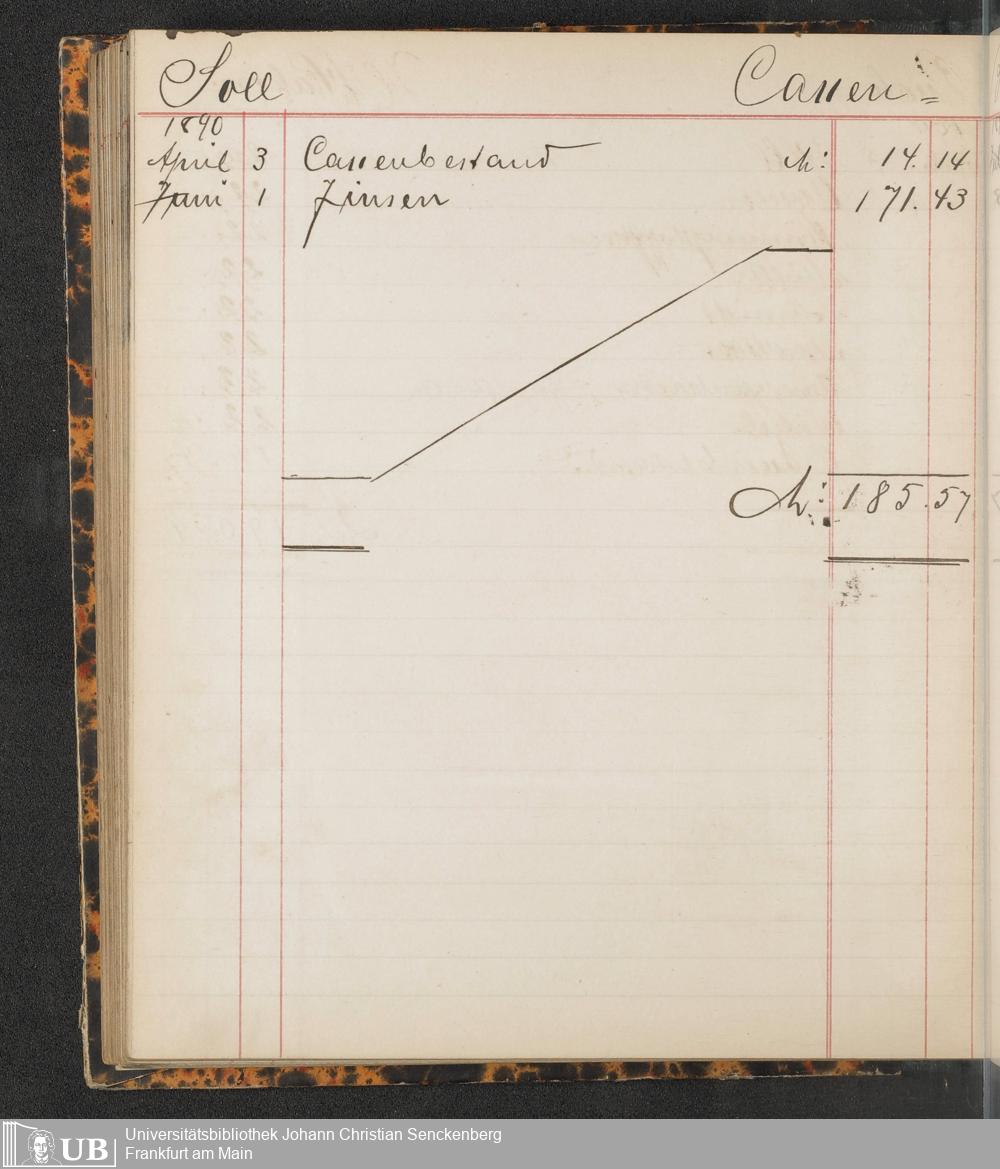 Soll Cassen=
1890
April 3 Cassenbestand M: 14. 14
Juni 1 Zinsen 171. 43
M: 185. 57
UB Universitätsbibliothek Johann Christian Senckenberg
Frankfurt am Main